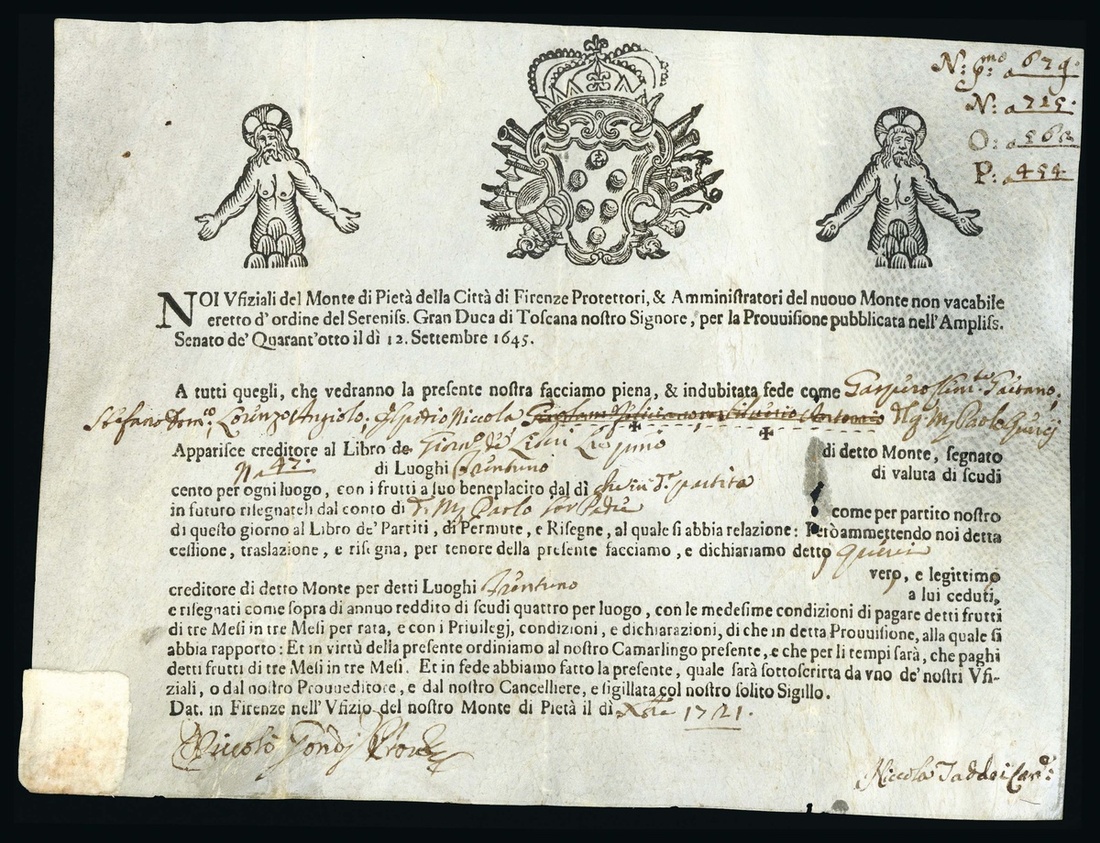 N: pmo a 679.
N: a 715.
O: a 568
P: a 454
NOI Vfiziali del Monte di Pietà della Città di Firenze Protettori, & Amministratori del nuouo Monte non vacabile
eretto d' ordine del Sereniss. Gran Duca di Toscana nostro Signore, per la Prouuisione pubblicata nell' Ampliss.
Senato de' Quarant'otto il dì 12. Settembre 1645.
A tutti quegli, che vedranno la presente nostra facciamo piena, & indubitata fede come Gaspero Gaetano,
Stefano Lorenzo Angiolo, Nicola Paolo
Apparisce creditore al Libro de di detto Monte, segnato
N a 47. di Luoghi Trentuno di valuta di scudi
cento per ogni luogo, con i frutti a suo beneplacito dal dì che in da partita
in futuro risegnateli dal conto di Paolo lor Padre come per partito nostro
di questo giorno al Libro de' Partiti, di Permute, e Risegne, al quale si abbia relazione: Però ammettendo noi detta
cessione, traslazione, e risegna, per tenore della presente facciamo, e dichiariamo detto
vero, e legittimo
creditore di detto Monte per detti Luoghi Trentuno a lui ceduti,
e risegnati come sopra di annuo reddito di scudi quattro per luogo, con le medesime condizioni di pagare detti frutti
di tre Mesi in tre Mesi per rata, e con i Priuilegj, condizioni, e dichiarazioni, di che in detta Prouuisione, alla quale si
abbia rapporto: Et in virtù della presente ordiniamo al nostro Camarlingo presente, e che per li tempi sarà, che paghi
detti frutti di tre Mesi in tre Mesi. Et in fede abbiamo fatto la presente, quale sarà sottoscritta da vno de' nostri Vfi-
ziali, o dal nostro Prouueditore, e dal nostro Cancelliere, e sigillata col nostro solito Sigillo.
Dat. in Firenze nell' Vfizio del nostro Monte di Pietà il dì 1721.
Niccolò
Niccola Taddei